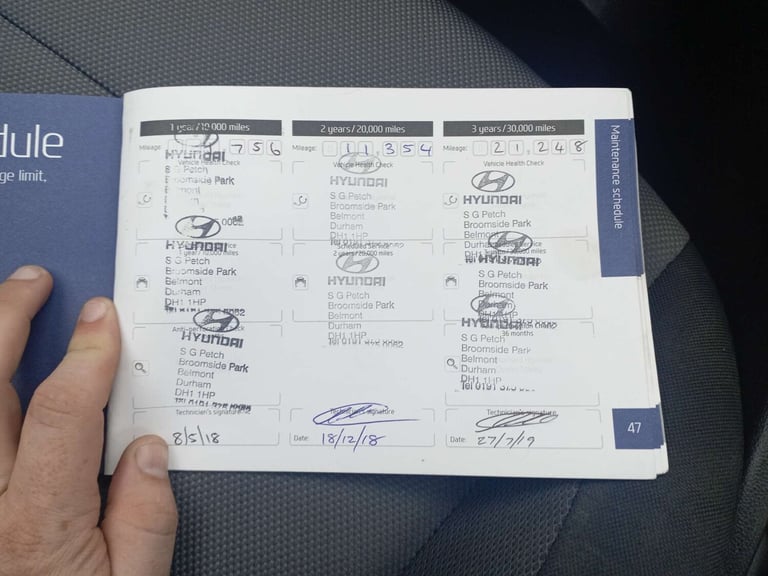 dule
ge limit,
1 year/10,000 miles
Mileage: 756
HYUNDAI
Vehicle Health Check
S G Petch
Broomside Park
Belmont
HYUNDAI
1 year/10,000 miles
S G Petch
Broomside Park
Belmont
Durham
DH1 1HP
HYUNDAI
S G Petch
Broomside Park
Belmont
Durham
DH1 1HP
Technician's signature
8/5/18
2 years/20,000 miles
Mileage: 11,354
Vehicle Health Check
HYUNDAI
S G Petch
Broomside Park
Belmont
Durham
DH1 1HP
Scheduled Service
2 years/20,000 miles
HYUNDAI
S G Petch
Broomside Park
Belmont
Durham
DH1 1HP
Technician's signature
Date: 18/12/18
3 years/30,000 miles
Mileage: 21,248
Vehicle Health Check
HYUNDAI
S G Petch
Broomside Park
Belmont
Durham
HYUNDAI
S G Petch
Broomside Park
Belmont
Durham
HYUNDAI
36 months
S G Petch
Broomside Park
Belmont
Durham
DH1 1HP
Technician's signature
Date: 27/7/19
Maintenance schedule
47